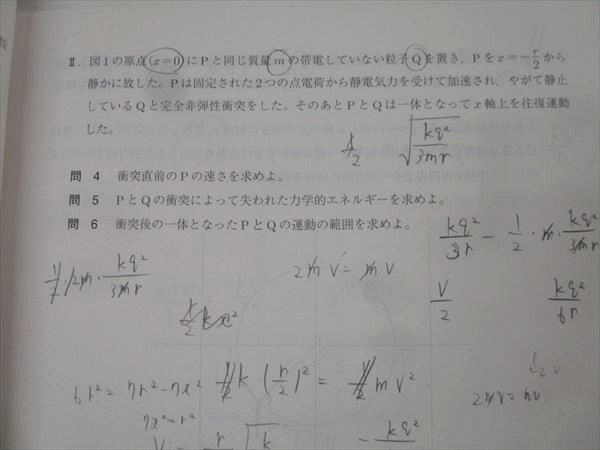 Ⅱ. 図1の原点(x=0)にPと同じ質量mの帯電していない粒子Qを置き，Pをx=-r/2から
静かに放した。Pは固定された2つの点電荷から静電気力を受けて加速され，やがて静止
しているQと完全非弾性衝突をした。そのあとPとQは一体となってx軸上を往復運動
した。
√(kq²/3mr)
問 4 衝突直前のPの速さを求めよ。
問 5 PとQの衝突によって失われた力学的エネルギーを求めよ。
問 6 衝突後の一体となったPとQの運動の範囲を求めよ。
kq²/3r - 1/2・m・kq²/3mr
1/2・2m・kq²/3mr
2mv' = mv
v/2
kq²/6r
6r² = 7r² - 7x²
1/2k・(r/2)² = 1/2mv²
2mv = mv
7x² = r²